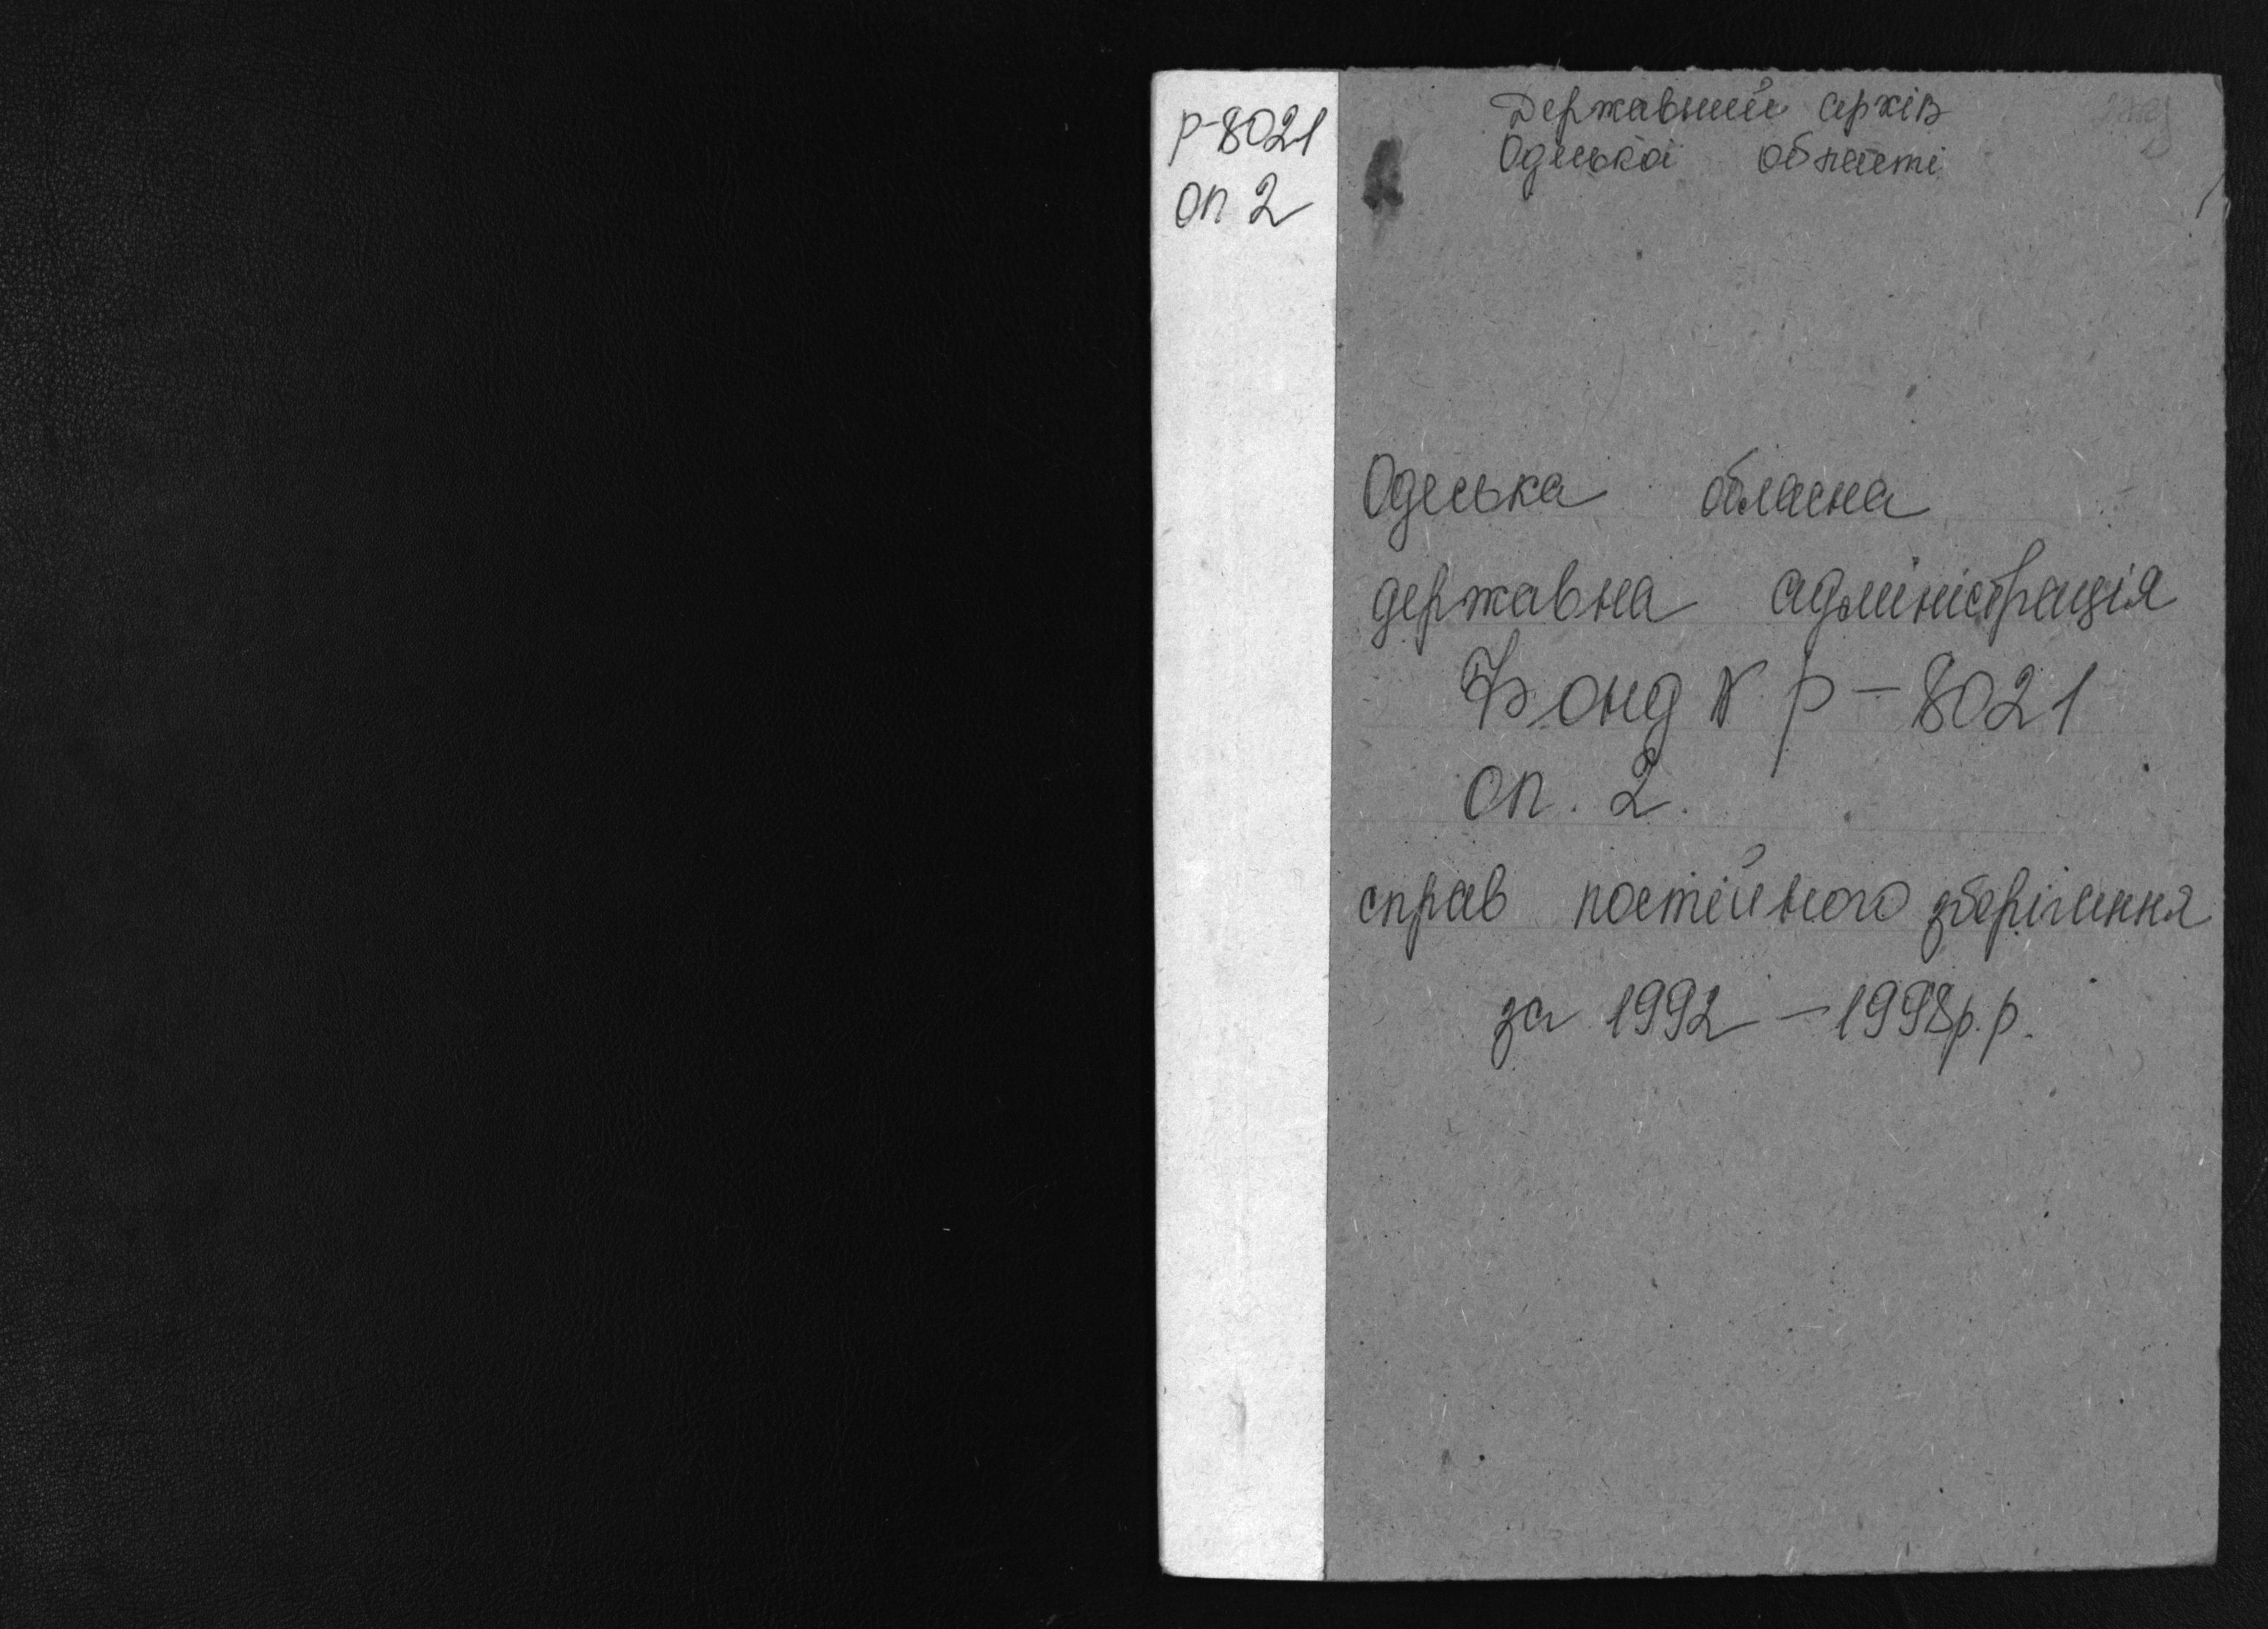 Р-8021
оп 2
Державний архів
Одеської області
Одеська обласна
державна адміністрація
Фонд № Р-8021
оп. 2.
справ постійного зберігання
за 1992-1998р.р.